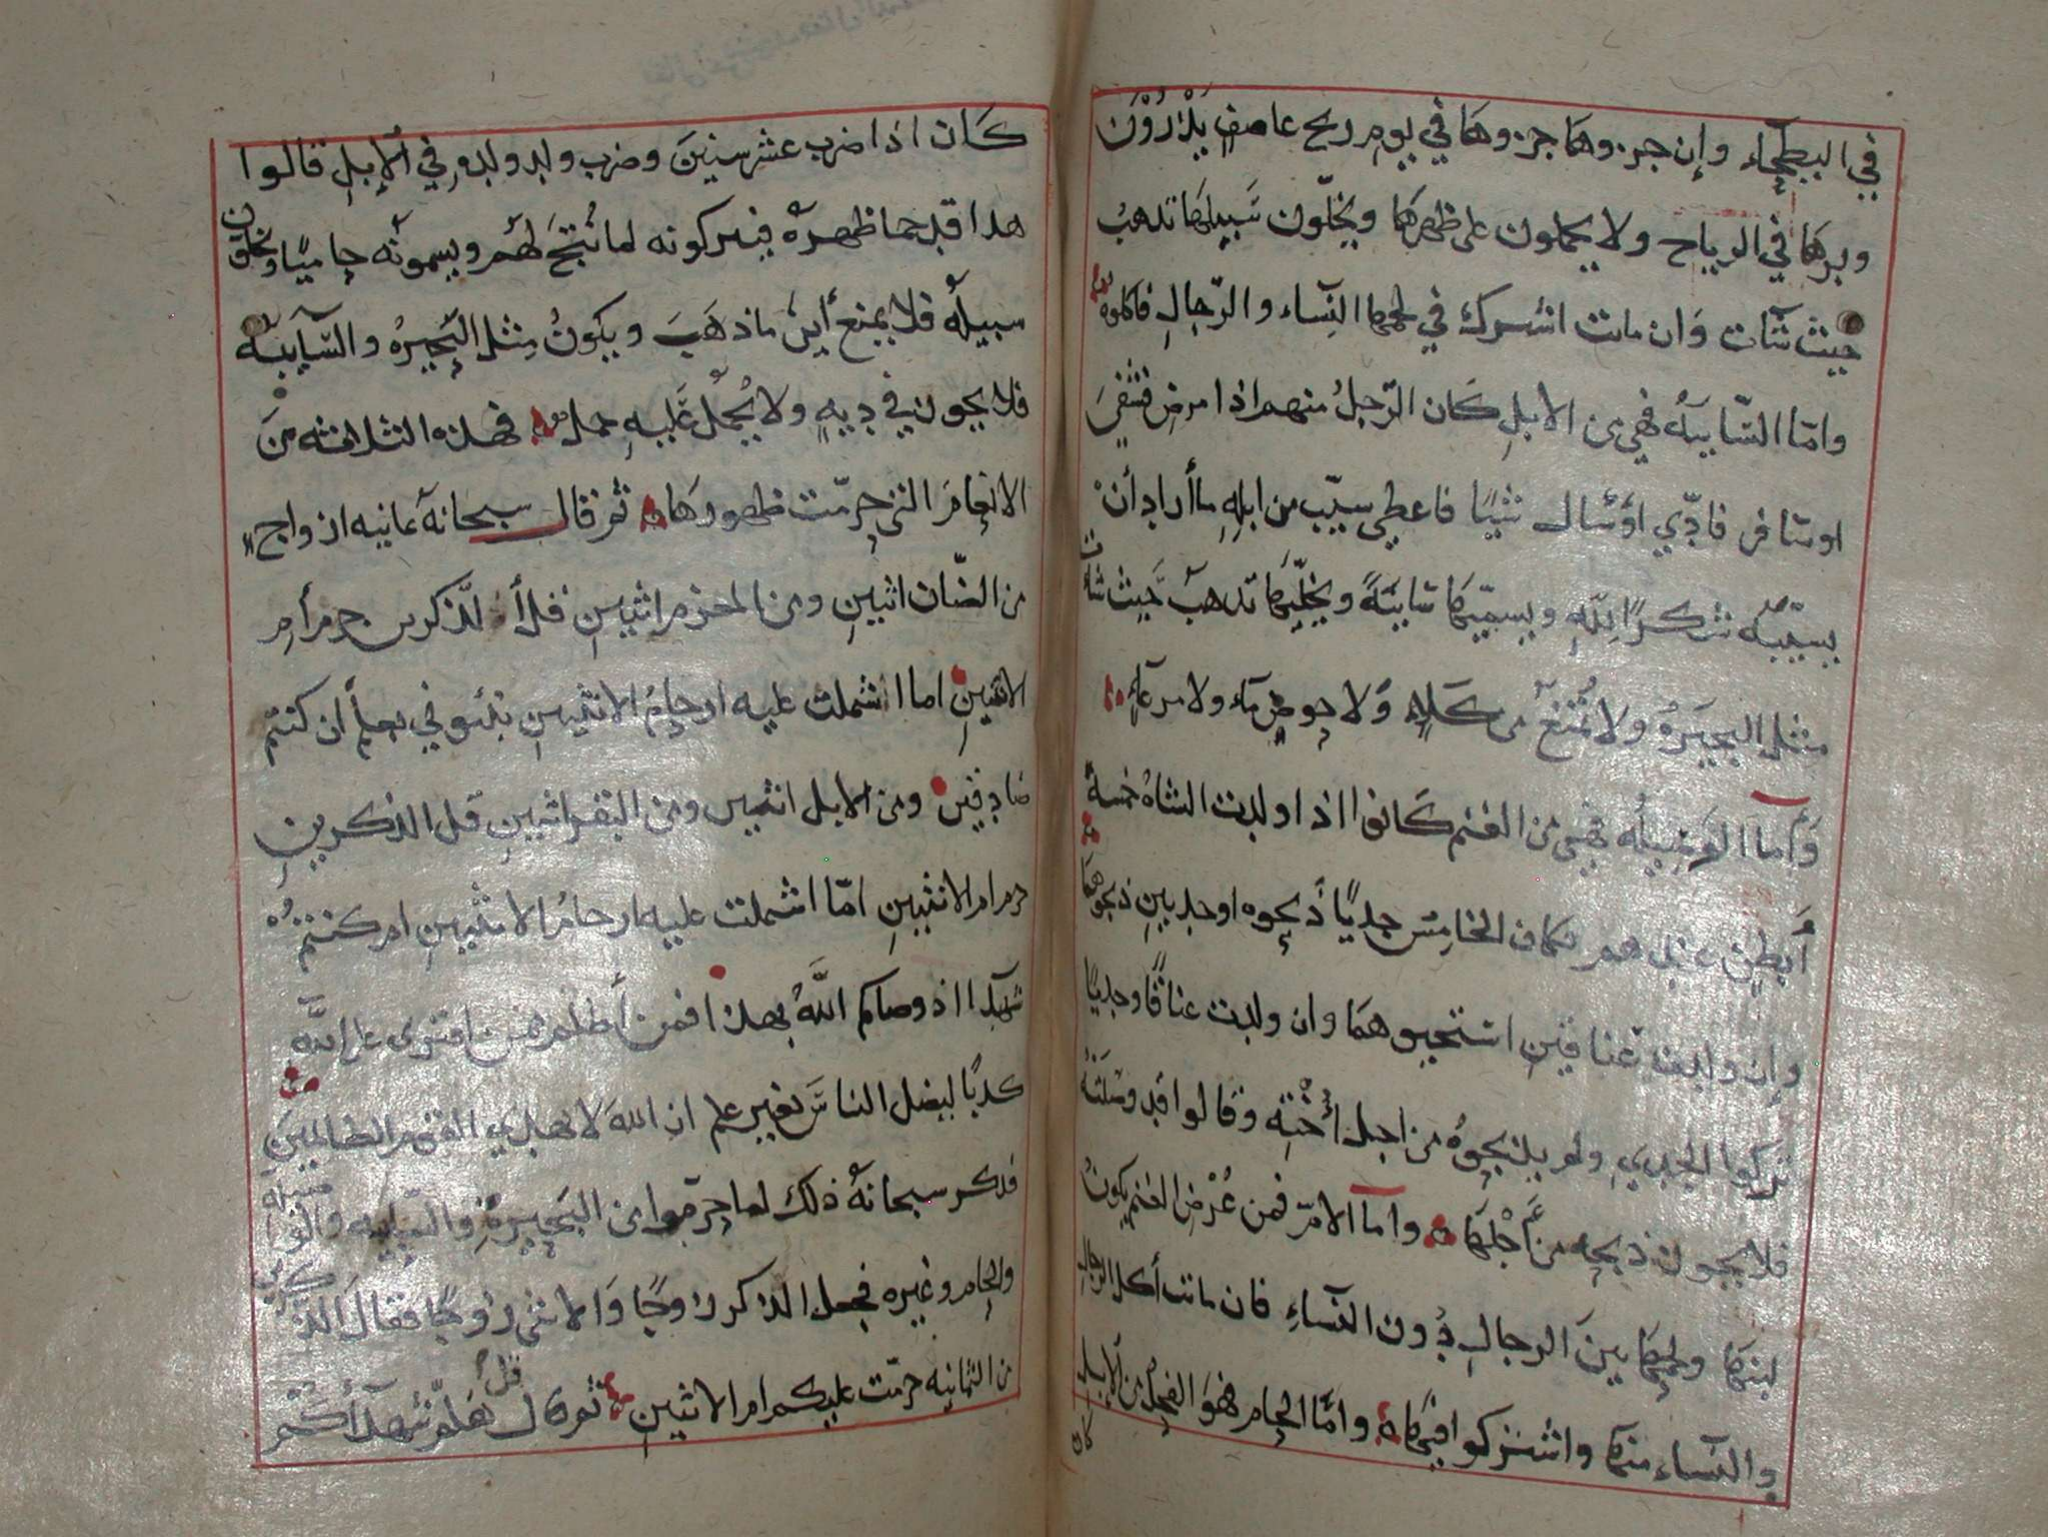 في البطحاء وإن جزوها جزوها في يوم ريح عاصف يذرون
وبرها في الرياح ولا يحملون على ظهرها ويخلّون سبيلها تدهب
حيث شآت وان ماتت اشترك في لحمها النسآء والرّجال فاكلوه
وامّا السّايبه فهي من الابل كان الرّجل منهم اذا مرض فشفي
او سافر فادّي او سال شيًا فاعطي سيّب من ابله ما أراد أن
يسيّبه شكرًا لله ويسمّيها سايبَةً ويخلّيها تدهب حيث شات
مثل البحيره ولا تمنع من كلاءٍ ولا حوض مآء ولا مرعآء
وأما الوصيله فهي من الغنم كانوا اذا ولدت الشاه خمسة
أبطن عندهم فكان الخامس جديًا ذبحوه او جديين ذبحوهما
وإن ولدت عناقين استحيوهما وان ولدت عناقًا وجديًا
تركوا الجدي ولم يذبحوه من اجل أخته وقالوا قد وصلته
فلا يجوز ذبحه من أجلها وامّا الامّ فمن عُرْض الغنم يكونُ
لبنها ولحمها بين الرجال دُون النسآءِ فان ماتت أكل الرجال
والنسآء منها واشتركوا فيها وامّا الحام فهو الفحل من الابل
كان
كان اذا ضرب عشر سنين وضرب ولد ولده في الإبل قالوا
هذا قد حما ظهره فيتركونه لما نُتجَ لهم ويسمونه حاميًا ويخلون
سبيله فلا يمنع أين ما ذهب ويكونُ مِثل البحيره والسّآيبه
فلا يجوز في ديهٍ ولا يُحمل عليه حمل فهذه الثلاثه من
الانعام التي حرّمت ظهورها ثم قال سبحانه ثمانيه ازواج
من الضّان اثنين ومن المعز اثنين قل أالذكرين حرم أم
الانثيين اما اشتملت عليه ارحام الانثيين نبئوني بعلم أن كنتم
صادقين ومن الابل اثنين ومن البقر اثنين قل الذكرين
حرم ام الانثيين امّا اشتملت عليه ارحام الانثيين ام كنتم
شهدآ اذ وصاكم اللهُ بهذا فمن أظلم ممن افترى على الله
كذبًا ليضل الناس بغير علم ان الله لا يهدي القوم الظالمين
فذكر سبحانه ذلك لما حرّموا من البحيره والسّايبه والوصيله
والحام وغيره فجعل الذكر زوجًا والانثى زوجًا فقال الذكرين
من الثمانيه حرّمت عليكم ام الانثيين ثم قال قل هلمّ شهدآكم